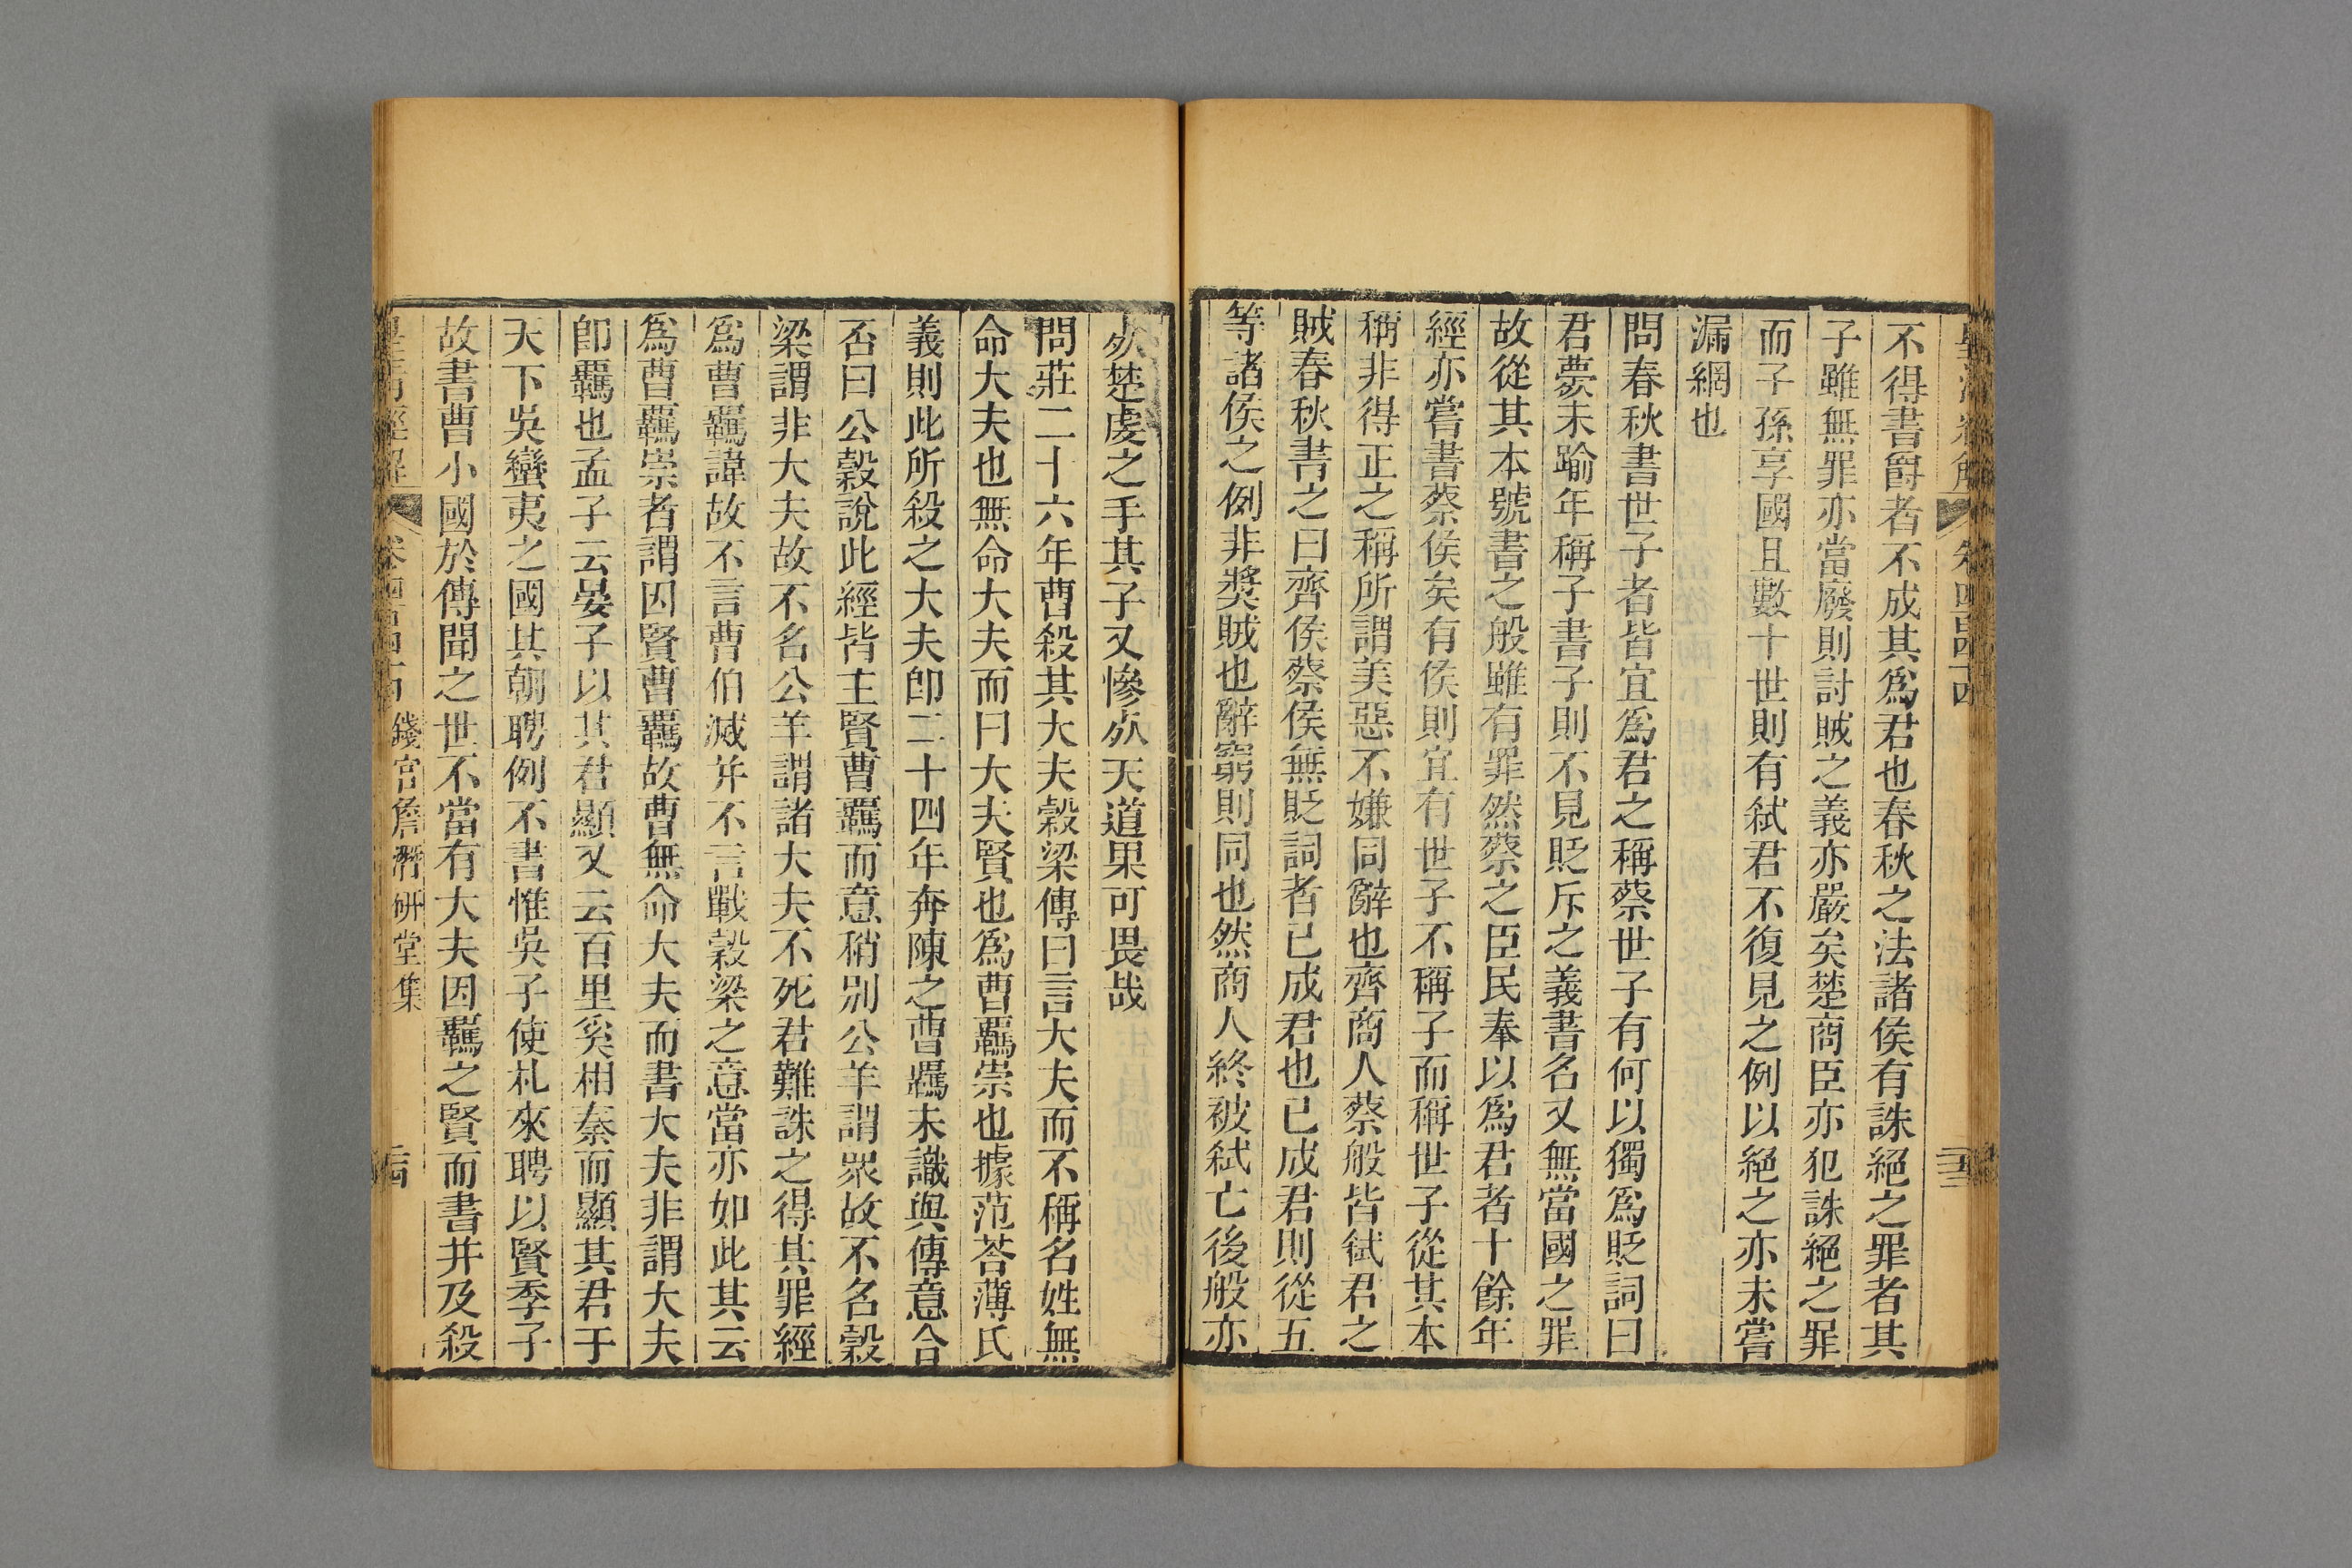 不得書爵者不成其爲君也春秋之法諸侯有誅絕之罪者其
子雖無罪亦當廢則討賊之義亦嚴矣楚商臣亦犯誅絕之罪
而子孫享國且數十世則有弑君不復見之例以絕之亦未嘗
漏網也
問春秋書世子者皆宜爲君之稱蔡世子有何以獨爲貶詞曰
君薨未踰年稱子書子則不見貶斥之義書名又無當國之罪
故從其本號書之般雖有罪然蔡之臣民奉以爲君者十餘年
經亦嘗書蔡侯矣有侯則宜有世子不稱子而稱世子從其本
稱非得正之稱所謂美惡不嫌同辭也齊商人蔡般皆弑君之
賊春秋書之曰齊侯蔡侯無貶詞者已成君也已成君則從五
等諸侯之例非獎賊也辭窮則同也然商人終被弑亡後般亦
㱕楚虔之手其子又慘㱕天道果可畏哉
問莊二十六年曹殺其大夫榖梁傳曰言大夫而不稱名姓無
命大夫也無命大夫而曰大夫賢也爲曹羈崇也據范荅薄氏
義則此所殺之大夫卽二十四年奔陳之曹羈未識與傳意合
否曰公榖說此經皆主賢曹羈而意稍别公羊謂眾故不名榖
梁謂非大夫故不名公羊謂諸大夫不死君難誅之得其罪經
爲曹羈諱故不言曹伯滅并不言戰榖梁之意當亦如此其云
爲曹羈崇者謂因賢曹羈故曹無命大夫而書大夫非謂大夫
卽羈也孟子云晏子以其君顯又云百里奚相秦而顯其君于
天下吳蠻夷之國其朝聘例不書惟吳子使札來聘以賢季子
故書曹小國於傳聞之世不當有大夫因羈之賢而書并及殺
錢宫詹潛研堂集